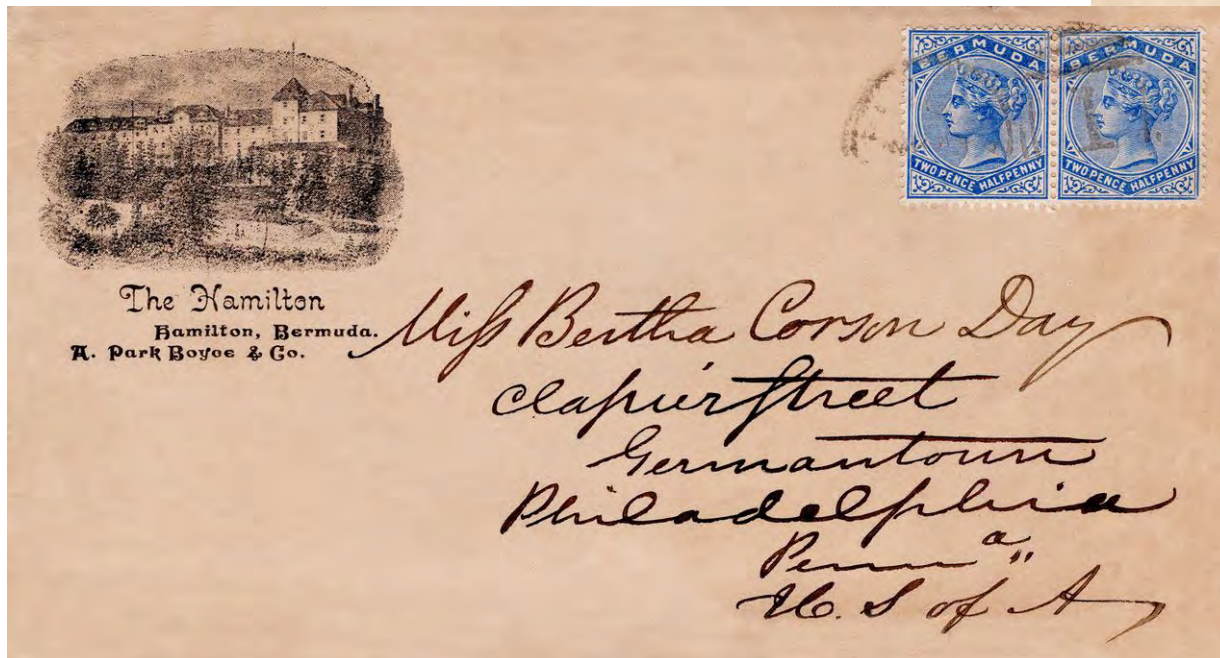 BERMUDA
TWO PENCE HALFPENNY
BERMUDA
TWO PENCE HALFPENNY
The Hamilton
Hamilton, Bermuda.
A. Park Boyce & Co.
Miss Bertha Corson Day
Clapier Street
Germantown
Philadelphia
Penna
U. S of A